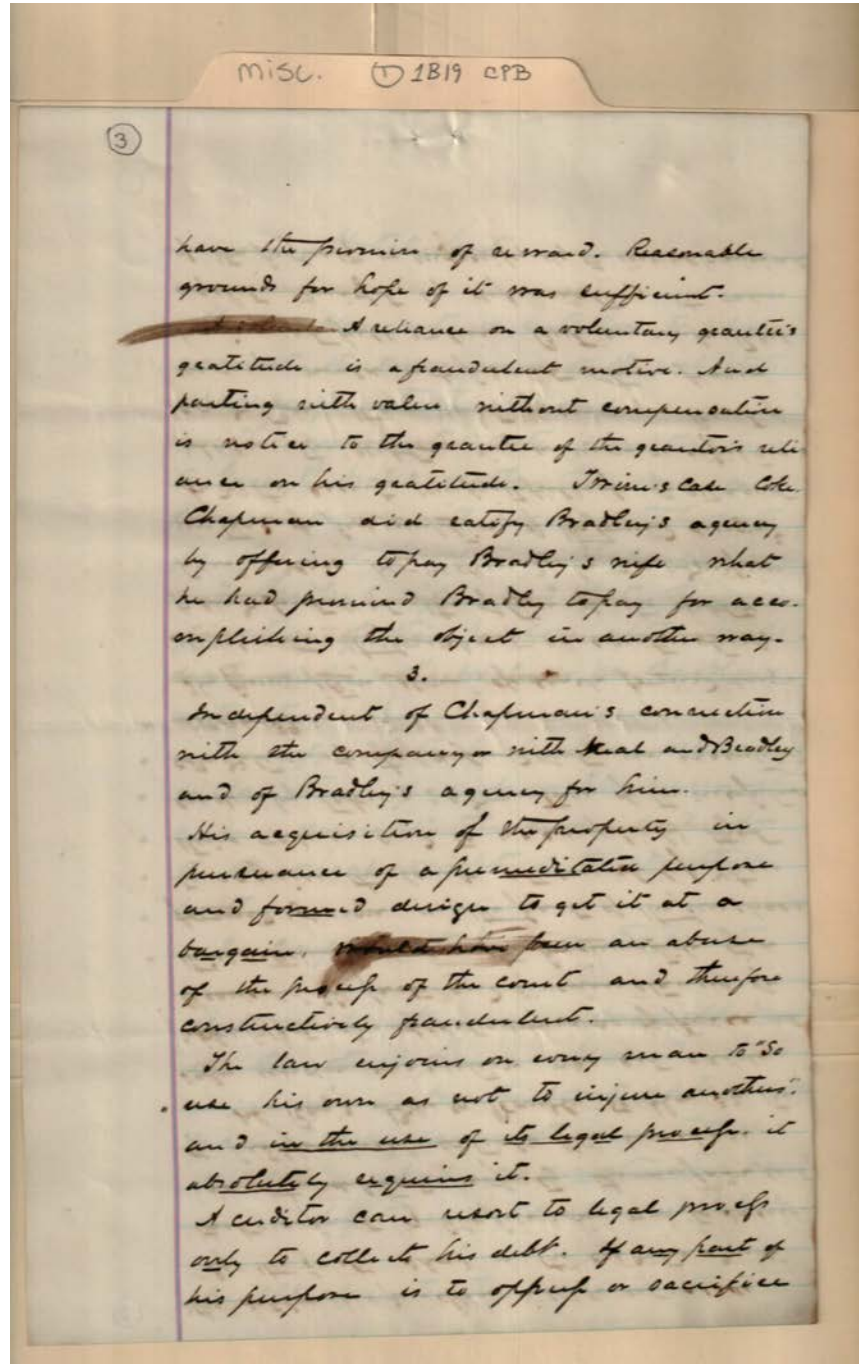 misc. ① 1B19 CPB
③
have the promise of reward. Reasonable
grounds for hope of it was sufficient.
A reliance on a voluntary grantee's
gratitude is a fraudulent motive. And
parting with value without compensation
is notice to the grantee of the grantor's reli
ance on his gratitude. Twine's Case Coke.
Chapman did ratify Bradley's agency
by offering to pay Bradley's wife what
he had promised Bradley to pay for acco-
mplishing the object in another way.
3.
Independent of Chapman's connection
with the company or with Neal and Bradley
and of Bradley's agency for him.
His acquisition of the property in
pursuance of a premeditated purpose
and formed design to get it at a
bargain, would have been an abuse
of the process of the court and therefore
constructively fraudulent.
The law enjoins on every man to "So
use his own as not to injure anothers".
and in the use of its legal process. it
absolutely requires it.
A creditor can resort to legal process
only to collect his debt. If any part of
his purpose is to oppress or sacrifice